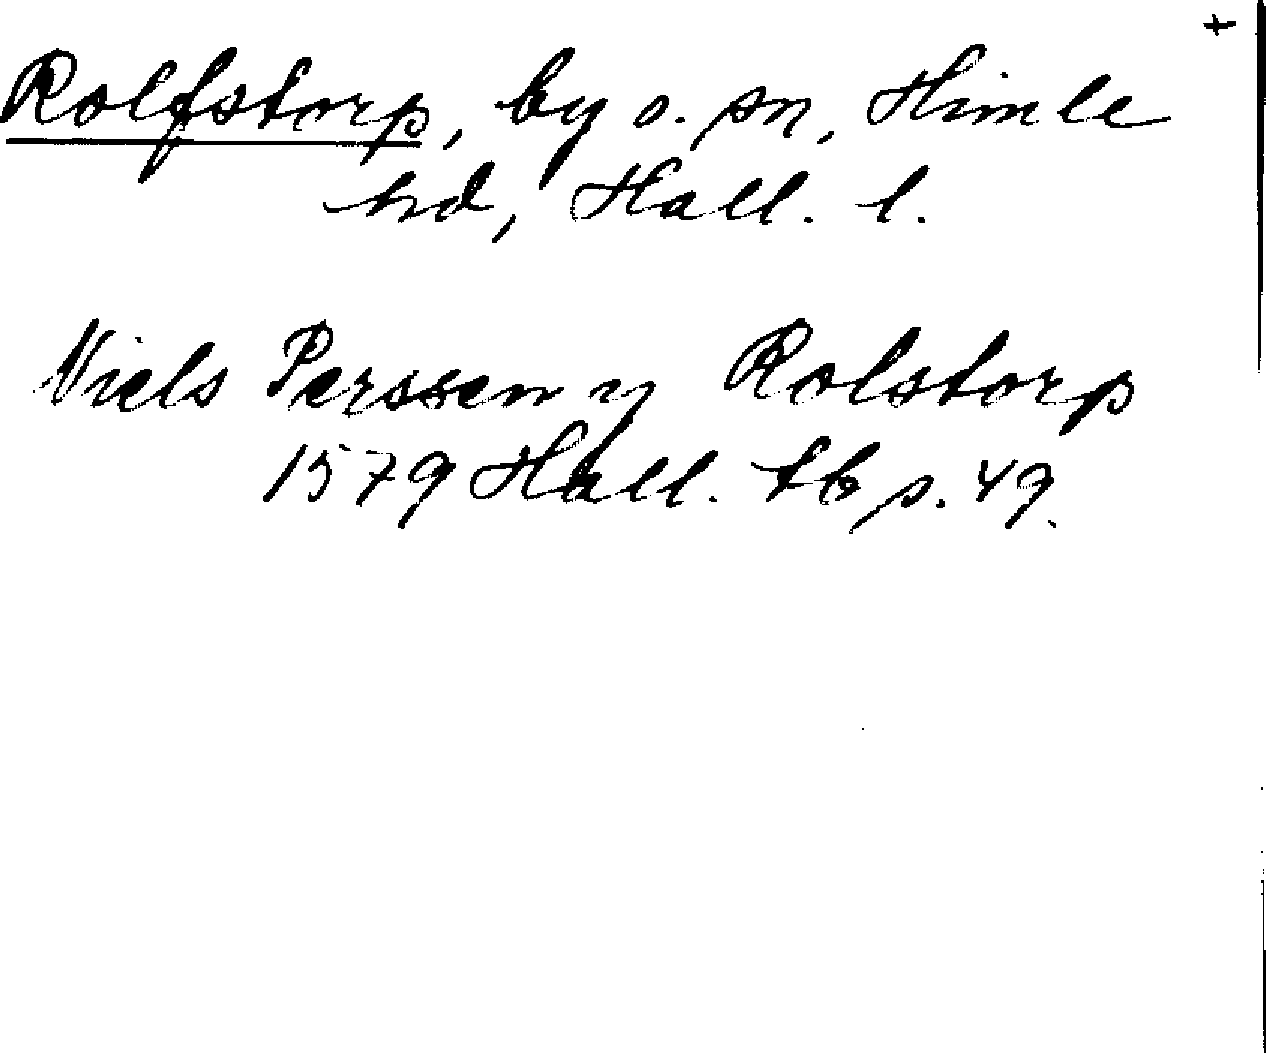 +
Rolfstorp, by o. sn, Himle
hd, Hall. l.
Niels Perssen y Rolstorp
1579 Hall. tb s. 49.